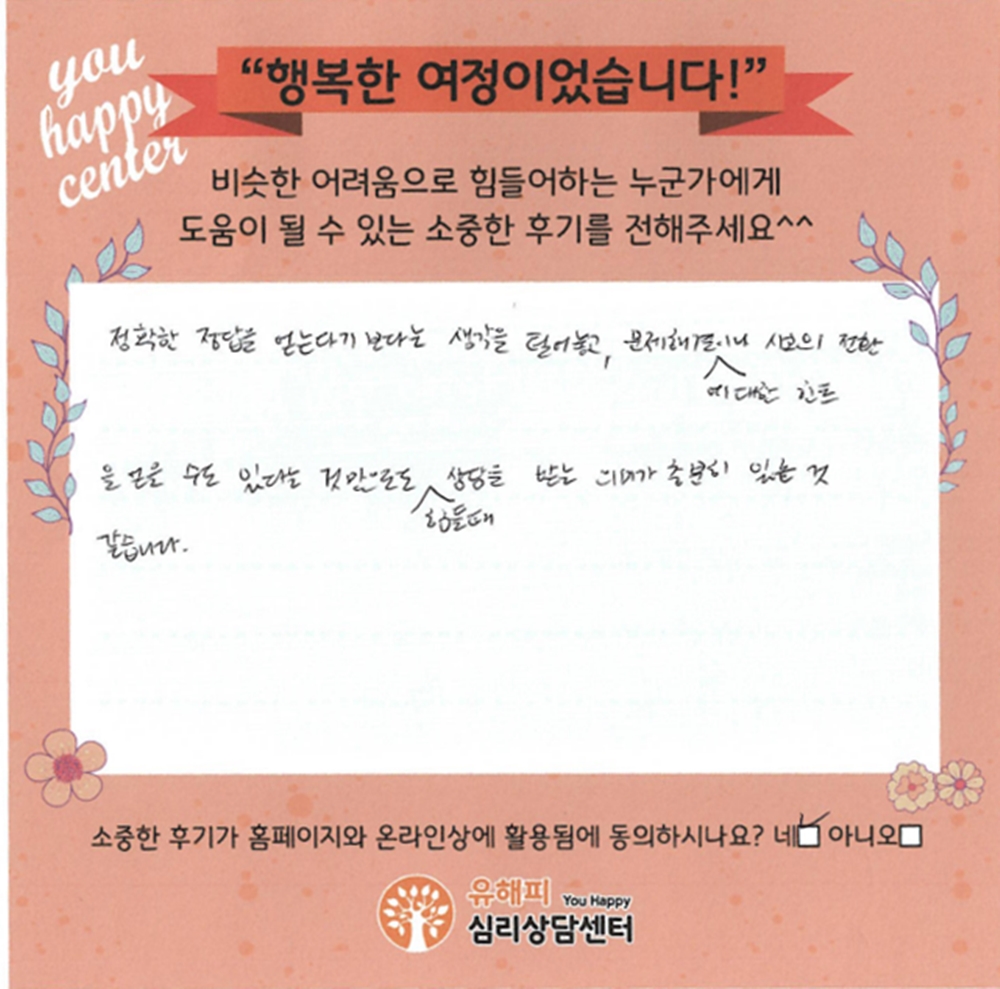 you
happy
center
“행복한 여정이었습니다!”
비슷한 어려움으로 힘들어하는 누군가에게
도움이 될 수 있는 소중한 후기를 전해주세요^^
정확한 정답을 얻는다기 보다는 생각을 털어놓고, 문제해결이나 사고의 전환
에 대한 힌트
을 얻을 수도 있다는 것만으로도 상담을 받는 의미가 충분히 있을 것
힘들때
같습니다.
소중한 후기가 홈페이지와 온라인상에 활용됨에 동의하시나요? 네 아니오
유해피 You Happy
심리상담센터